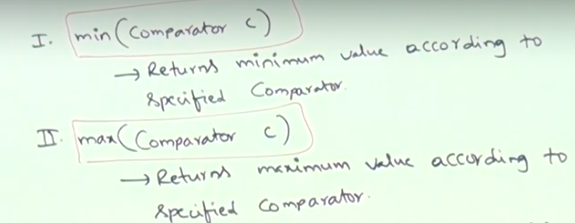 I. min(Comparator c)
→ Returns minimum value according to
specified Comparator.
II. max(Comparator c)
→ Returns maximum value according to
specified comparator.